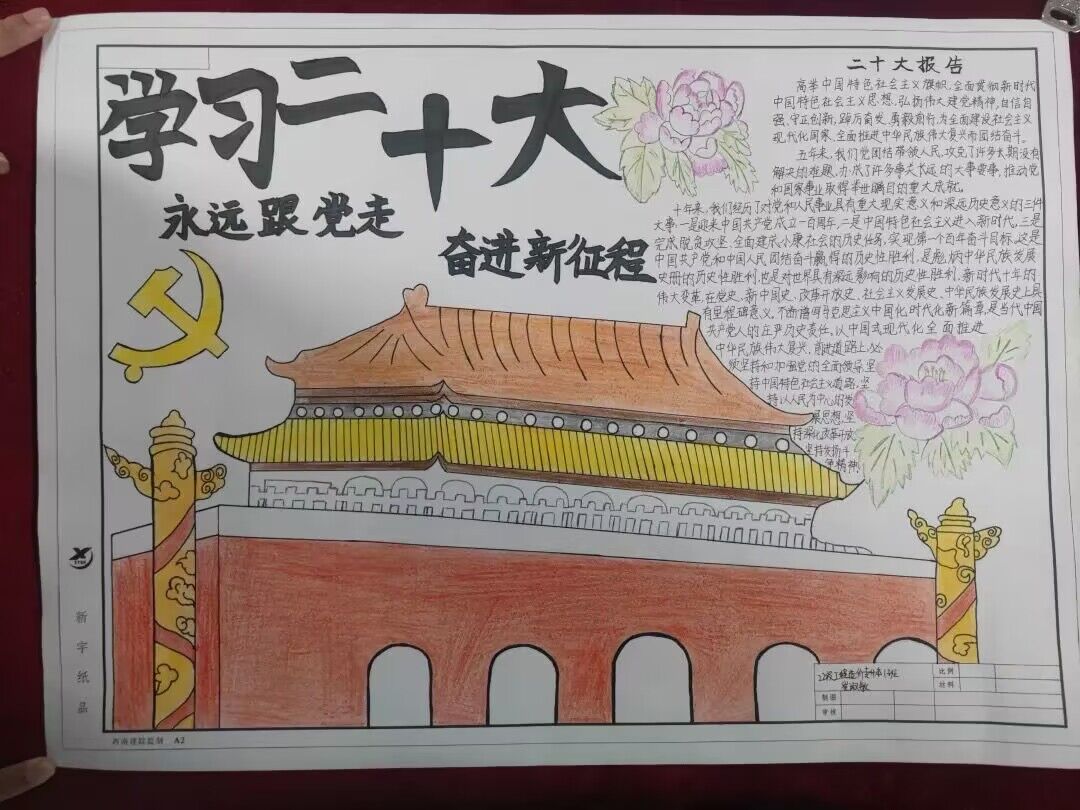 学习二十大
永远跟党走
奋进新征程
二十大报告
高举中国特色社会主义旗帜,全面贯彻新时代
中国特色社会主义思想,弘扬伟大建党精神,自信自
强、守正创新,踔厉奋发、勇毅前行,为全面建设社会主义
现代化国家、全面推进中华民族伟大复兴而团结奋斗。
五年来,我们党团结带领人民,攻克了许多长期没有
解决的难题,办成了许多事关长远的大事要事,推动党
和国家事业取得举世瞩目的重大成就。
十年来,我们经历了对党和人民事业具有重大现实意义和深远历史意义的三件
大事:一是迎来中国共产党成立一百周年,二是中国特色社会主义进入新时代,三是
完成脱贫攻坚、全面建成小康社会的历史任务,实现第一个百年奋斗目标。这是
中国共产党和中国人民团结奋斗赢得的历史性胜利,是彪炳中华民族发展
史册的历史性胜利,也是对世界具有深远影响的历史性胜利。新时代十年的
伟大变革,在党史、新中国史、改革开放史、社会主义发展史、中华民族发展史上具
有里程碑意义。不断谱写马克思主义中国化时代化新篇章,是当代中国
共产党人的庄严历史责任。以中国式现代化全面推进
中华民族伟大复兴,前进道路上,必
须坚持和加强党的全面领导,坚
持中国特色社会主义道路,坚
持以人民为中心的发
展思想,坚
持深化改革开放,
坚持发扬斗
争精神。
新宇纸品
22级工程造价专升本1班
比例
材料
制图
审核
西南建院监制 A2